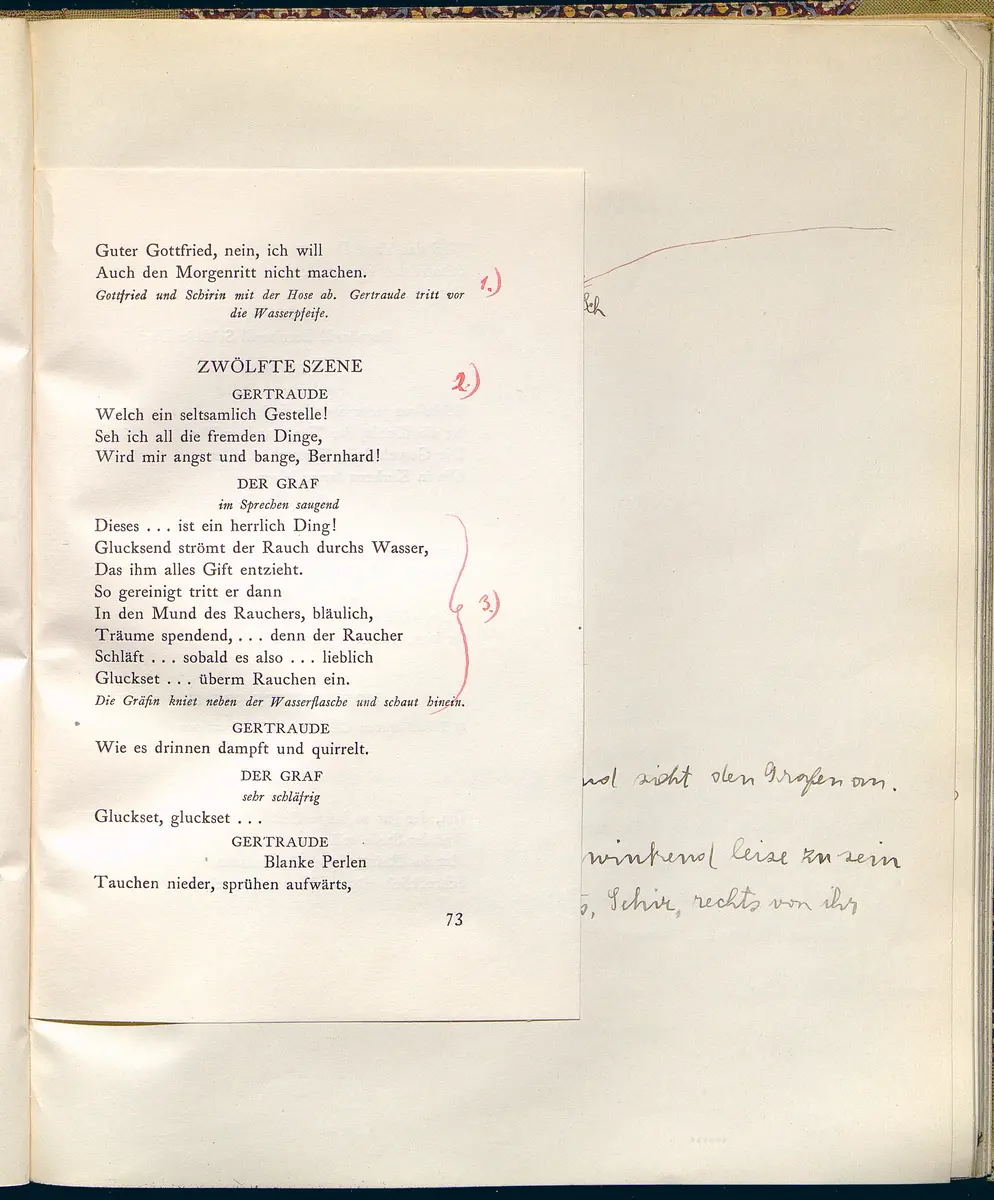 Guter Gottfried, nein, ich will
Auch den Morgenritt nicht machen.
1.)
Gottfried und Schirin mit der Hose ab. Gertraude tritt vor
die Wasserpfeife.
ZWÖLFTE SZENE
2.)
GERTRAUDE
Welch ein seltsamlich Gestelle!
Seh ich all die fremden Dinge,
Wird mir angst und bange, Bernhard!
DER GRAF
im Sprechen saugend
Dieses . . . ist ein herrlich Ding!
Glucksend strömt der Rauch durchs Wasser,
Das ihm alles Gift entzieht.
So gereinigt tritt er dann
3.)
In den Mund des Rauchers, bläulich,
Träume spendend, . . . denn der Raucher
Schläft . . . sobald es also . . . lieblich
Gluckset . . . überm Rauchen ein.
Die Gräfin kniet neben der Wasserflasche und schaut hinein.
GERTRAUDE
Wie es drinnen dampft und quirrelt.
DER GRAF
sehr schläfrig
Gluckset, gluckset . . .
GERTRAUDE
Blanke Perlen
Tauchen nieder, sprühen aufwärts,
73
sieht den Grafen an.
winkend leise zu sein
Schir, rechts von ihr